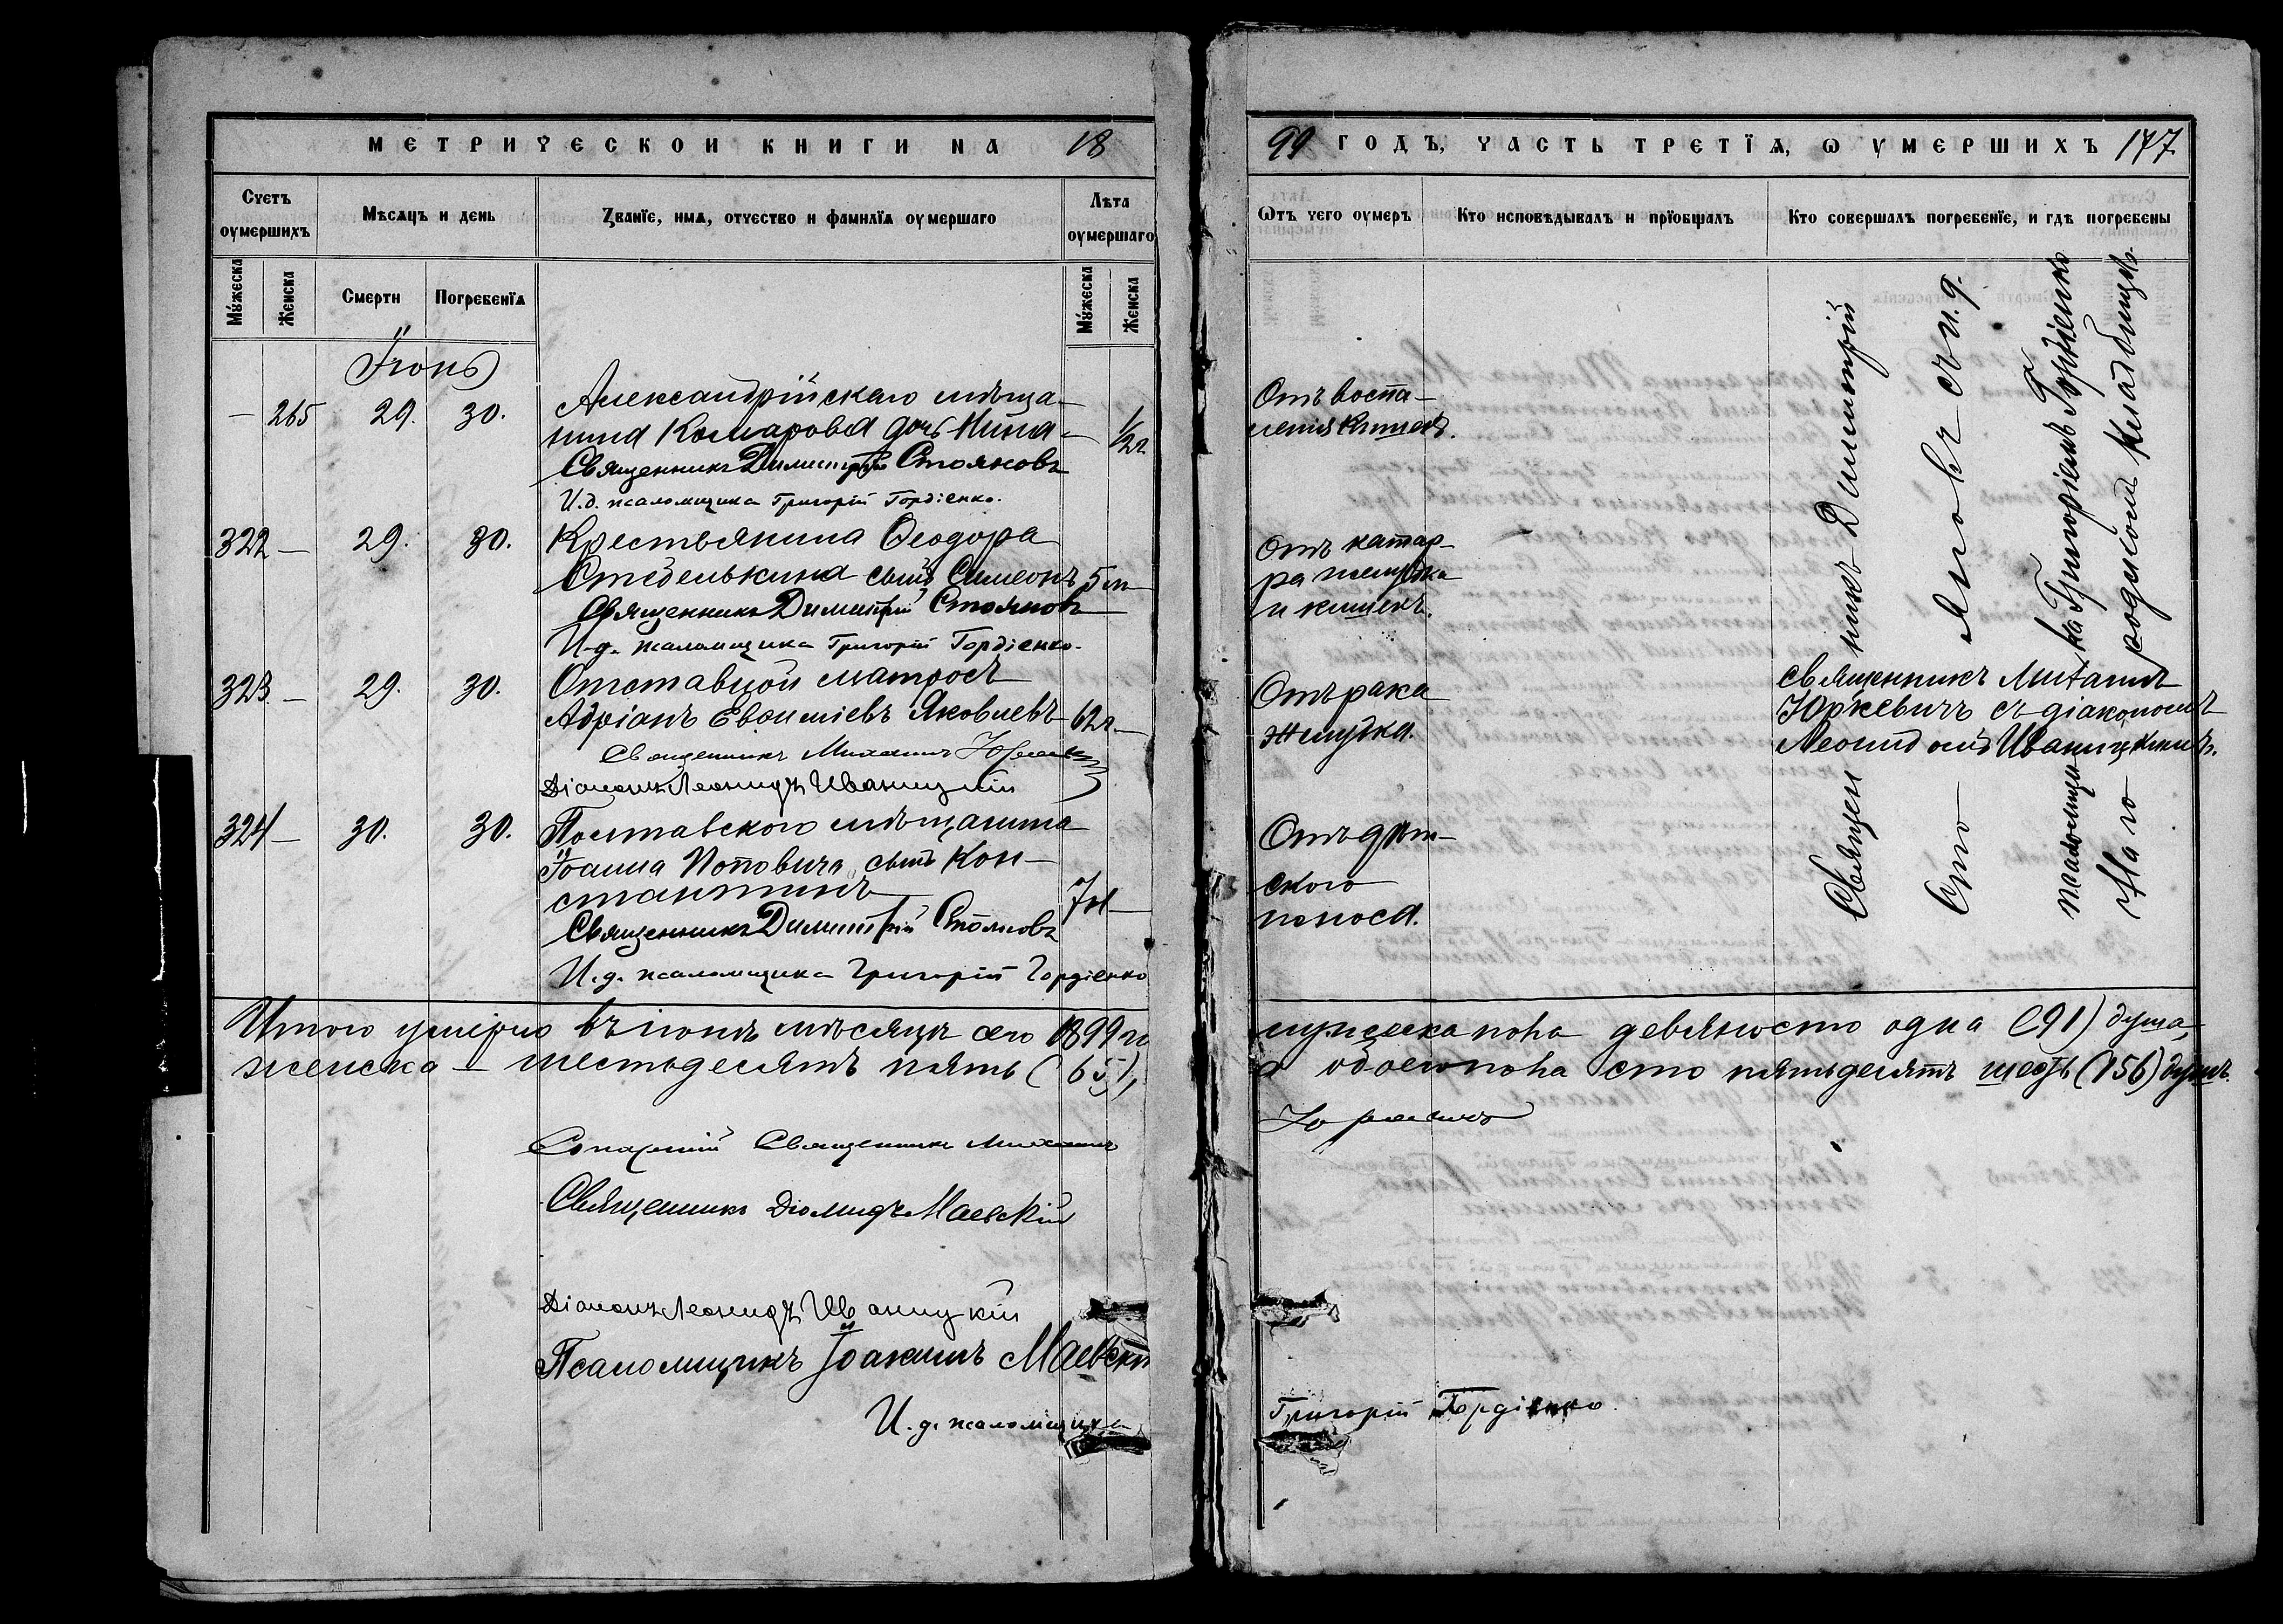 МЕТРИЧЕСКОЙ КНИГИ НА 18
99 ГОДЪ, ЧАСТЬ ТРЕТІѦ, Ѡ УМЕРШИХЪ 177
Счетъ оумершихъ
Мѣсяцъ и день
Званїе, имѧ, отчество и фамилїѧ оумершаго
Лѣта оумершаго
Мужеска
Женска
Смерти
Погребенїѧ
Мужеска
Женска
Ѿтъ чего оумеръ
Кто исповѣдывалъ и прїобщалъ
Кто совершалъ погребенїе, и гдѣ погребены
Іюнь
— 265 29. 30. Александрійскаго мѣща-
нина Комарова дочь Нина — 1/2 г
Священникъ Димитрій Стояновъ
И.д. псаломщика Григорій Гордіенко.
Отъ воспа-
ленія кишекъ.
322 — 29. 30. Крестьянина Ѳеодора
Стѣделькина сынъ Симеонъ 5 м —
Священникъ Димитрій Стояновъ
И.д. псаломщика Григорій Гордіенко.
Отъ катар-
ра желудка
и кишекъ.
323. — 29. 30. Отставной матросъ
Адріанъ Евѳиміевъ Яковлевъ 62 г. —
Священникъ Михаилъ Юркевичъ
Діаконъ Леонидъ Иваницкій
Отъ рака
желудка.
Священникъ Михаилъ
Юркевичъ съ діакономъ
Леонидомъ Иваницкимъ.
324 — 30. 30. Полтавского мѣщанина
Іоанна Поповича, сынъ Кон-
стантинъ 7 м —
Священникъ Димитрій Стояновъ
И.д. псаломщика Григорій Гордіенко
Отъ дѣт-
ского
поноса.
Священникъ Димитрій
Стояновъ съ и. д.
псаломщика Григоріемъ Гордіенко
На городском кладбищѣ.
Итого умерло въ іюнѣ мѣсяцѣ сего 1899 г. мужеска пола девяносто одна (91) душа,
женска — шестьдесятъ пять (65), а обоего пола сто пятьдесятъ шесть (156) душъ.
Священникъ Михаилъ Юркевичъ
Священникъ Діомидъ Маевскій
Діаконъ Леонидъ Иваницкій
Псаломщикъ Іоакимъ Маевскій
И.д. псаломщика Григорій Гордіенко.